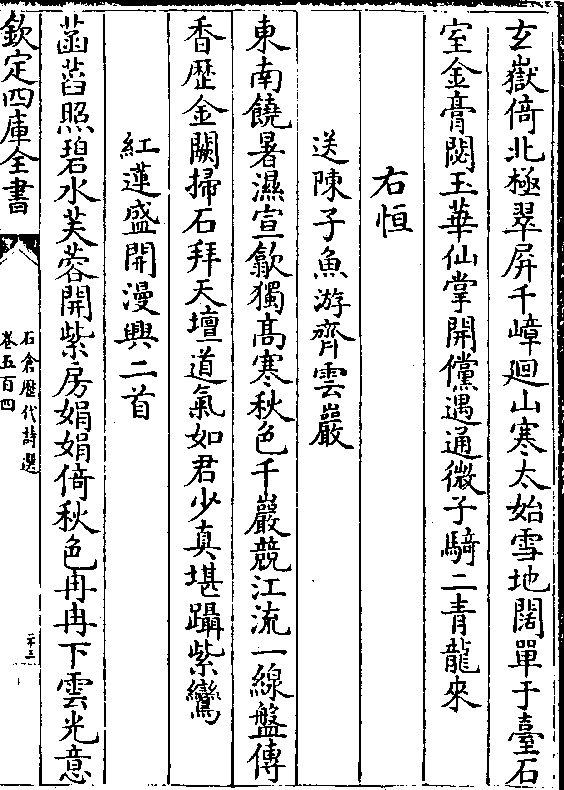 玄嶽倚北極翠屏千嶂迴山寒太始雪地闊單于臺石
室金膏閟玉華仙掌開儻遇通微子騎二青龍來
右恒
送陳子魚游齊雲巖
東南饒暑濕宣歙獨高寒秋色千巖競江流一線盤傳
香歴金闕掃石拜天壇道氣如君少真堪躡紫鸞
紅蓮盛開漫興二首
菡萏照碧水芙蓉開紫房娟娟倚秋色冉冉下雲光意
欽定四庫全書
石倉歴代詩選
卷五百四